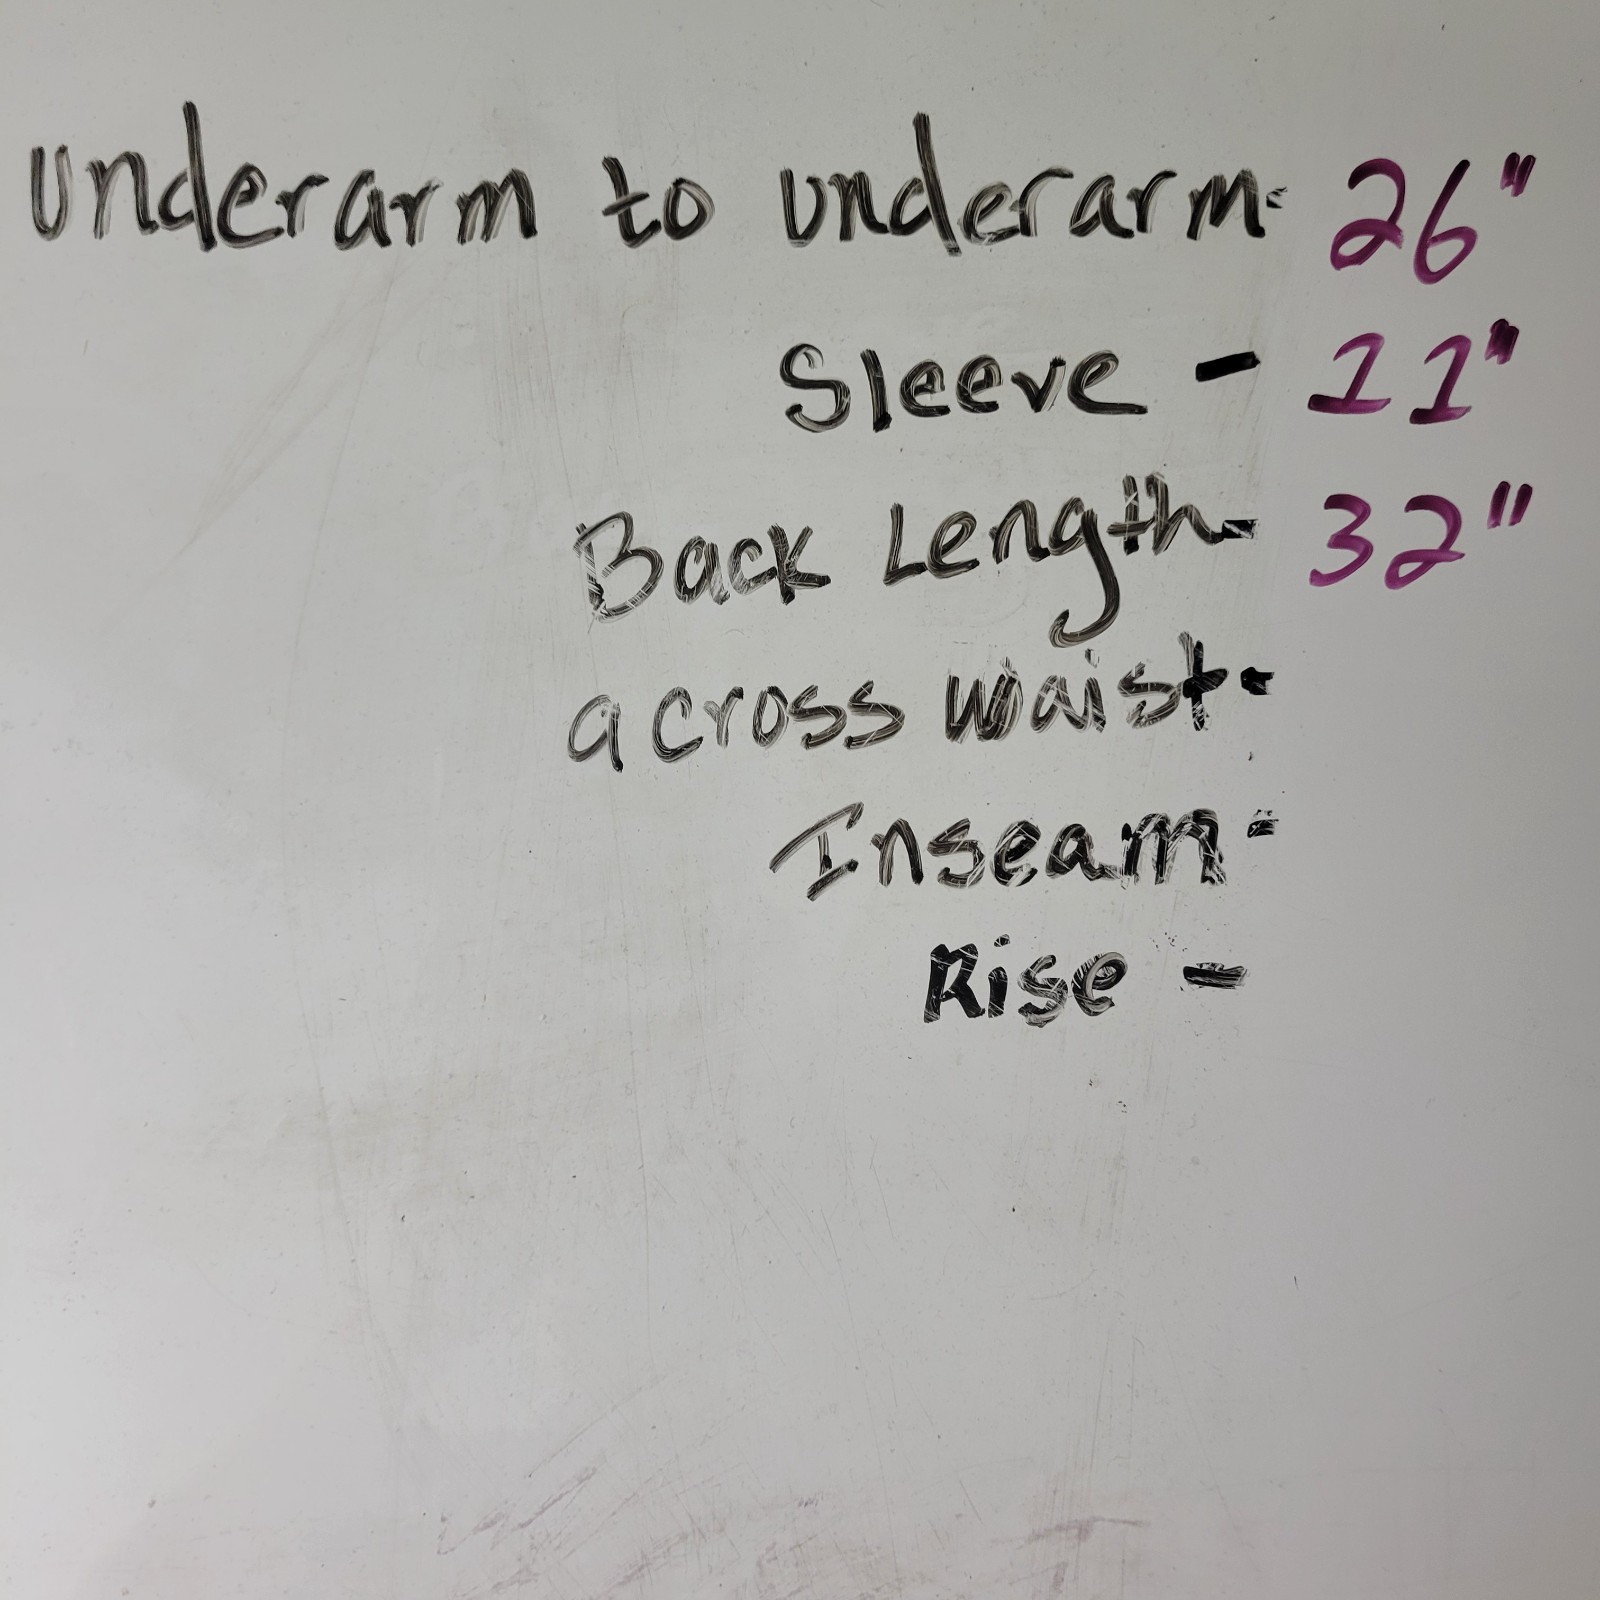 Underarm to underarm- 26"
Sleeve - 11"
Back Length- 32"
across waist-
Inseam -
Rise -